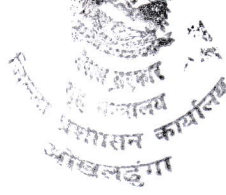 नेपाल सरकार
गृह मन्त्रालय
जिल्ला प्रशासन कार्यालय
ओखलढुंगा